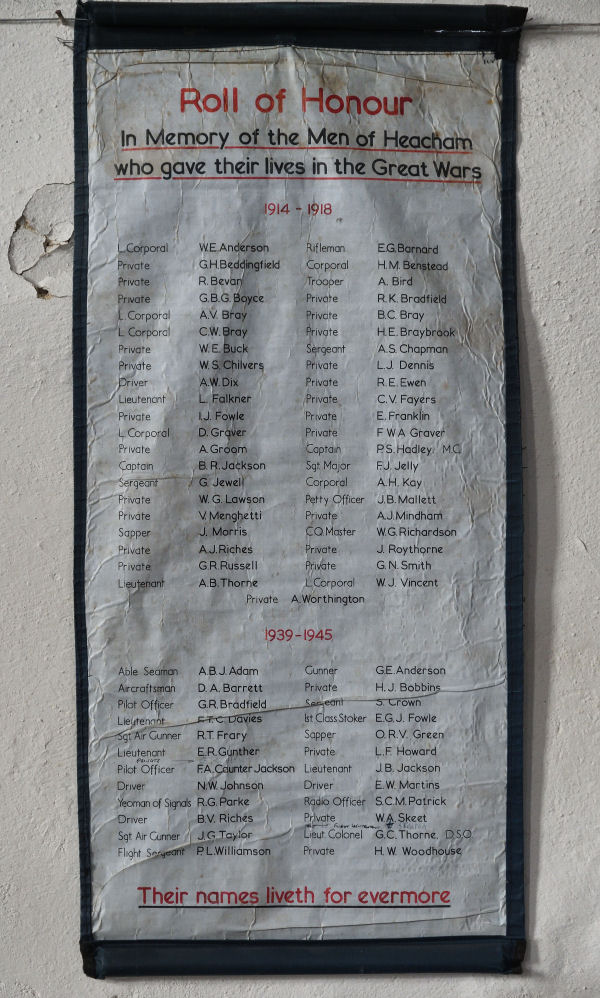 Roll of Honour
In Memory of the Men of Heacham
who gave their lives in the Great Wars
1914 - 1918
L.Corporal W.E.Anderson Rifleman E.G.Barnard
Private G.H.Beddingfield Corporal H.M.Benstead
Private R.Bevan Trooper A. Bird
Private G.B.G.Boyce Private R.K.Bradfield
L.Corporal A.V. Bray Private B.C. Bray
L.Corporal C.W.Bray Private H.E.Braybrook
Private W.E.Buck Sergeant A.S.Chapman
Private W.S.Chilvers Private L.J. Dennis
Driver A.W.Dix Private R.E.Ewen
Lieutenant L. Falkner Private C.V. Fayers
Private I.J. Fowle Private E.Franklin
L.Corporal D.Graver Private F W A Graver
Private A.Groom Captain P.S.Hadley. M.C
Captain B.R.Jackson Sgt.Major F.J. Jelly
Sergeant G. Jewell Corporal A.H. Kay
Private W.G.Lawson Petty Officer J.B.Mallett
Private V.Menghetti Private A.J.Mindham
Sapper J. Morris C.Q.Master W.G.Richardson
Private A.J.Riches Private J. Roythorne
Private G.R.Russell Private G.N.Smith
Lieutenant A.B.Thorne L.Corporal W.J. Vincent
Private A.Worthington
1939-1945
Able Seaman A.B.J.Adam Gunner G.E.Anderson
Aircraftsman D.A.Barrett Private H.J. Bobbins
Pilot Officer G.R.Bradfield Sergeant S. Crown
Lieutenant Davies 1st Class Stoker E.G.J. Fowle
Sgt Air Gunner R.T. Frary Sapper O.R.V. Green
Lieutenant E.R.Gunther Private L.F. Howard
Pilot Officer F.A.Caunter Jackson Lieutenant J.B. Jackson
Driver N.W.Johnson Driver E.W.Martins
Yeoman of Signals R.G.Parke Radio Officer S.C.M.Patrick
Driver B.V. Riches Private W.A.Skeet
Sgt Air Gunner J.G.Taylor Lieut Colonel G.C.Thorne. D.S.O.
Flight Sergeant P.L.Williamson Private H.W. Woodhouse
Their names liveth for evermore